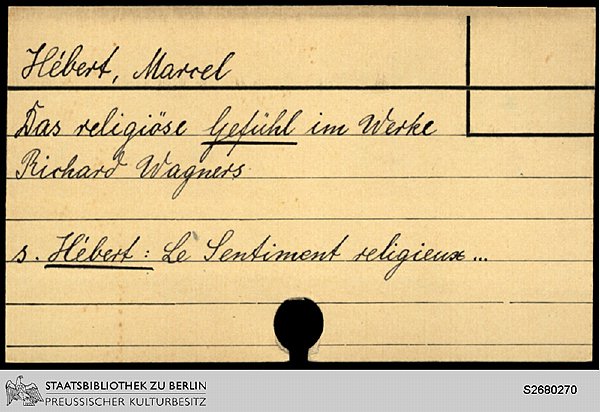 Hébert, Marcel
Das religiöse Gefühl im Werke
Richard Wagners
s. Hébert: Le Sentiment religieux...
STAATSBIBLIOTHEK ZU BERLIN
PREUSSISCHER KULTURBESITZ
S2680270